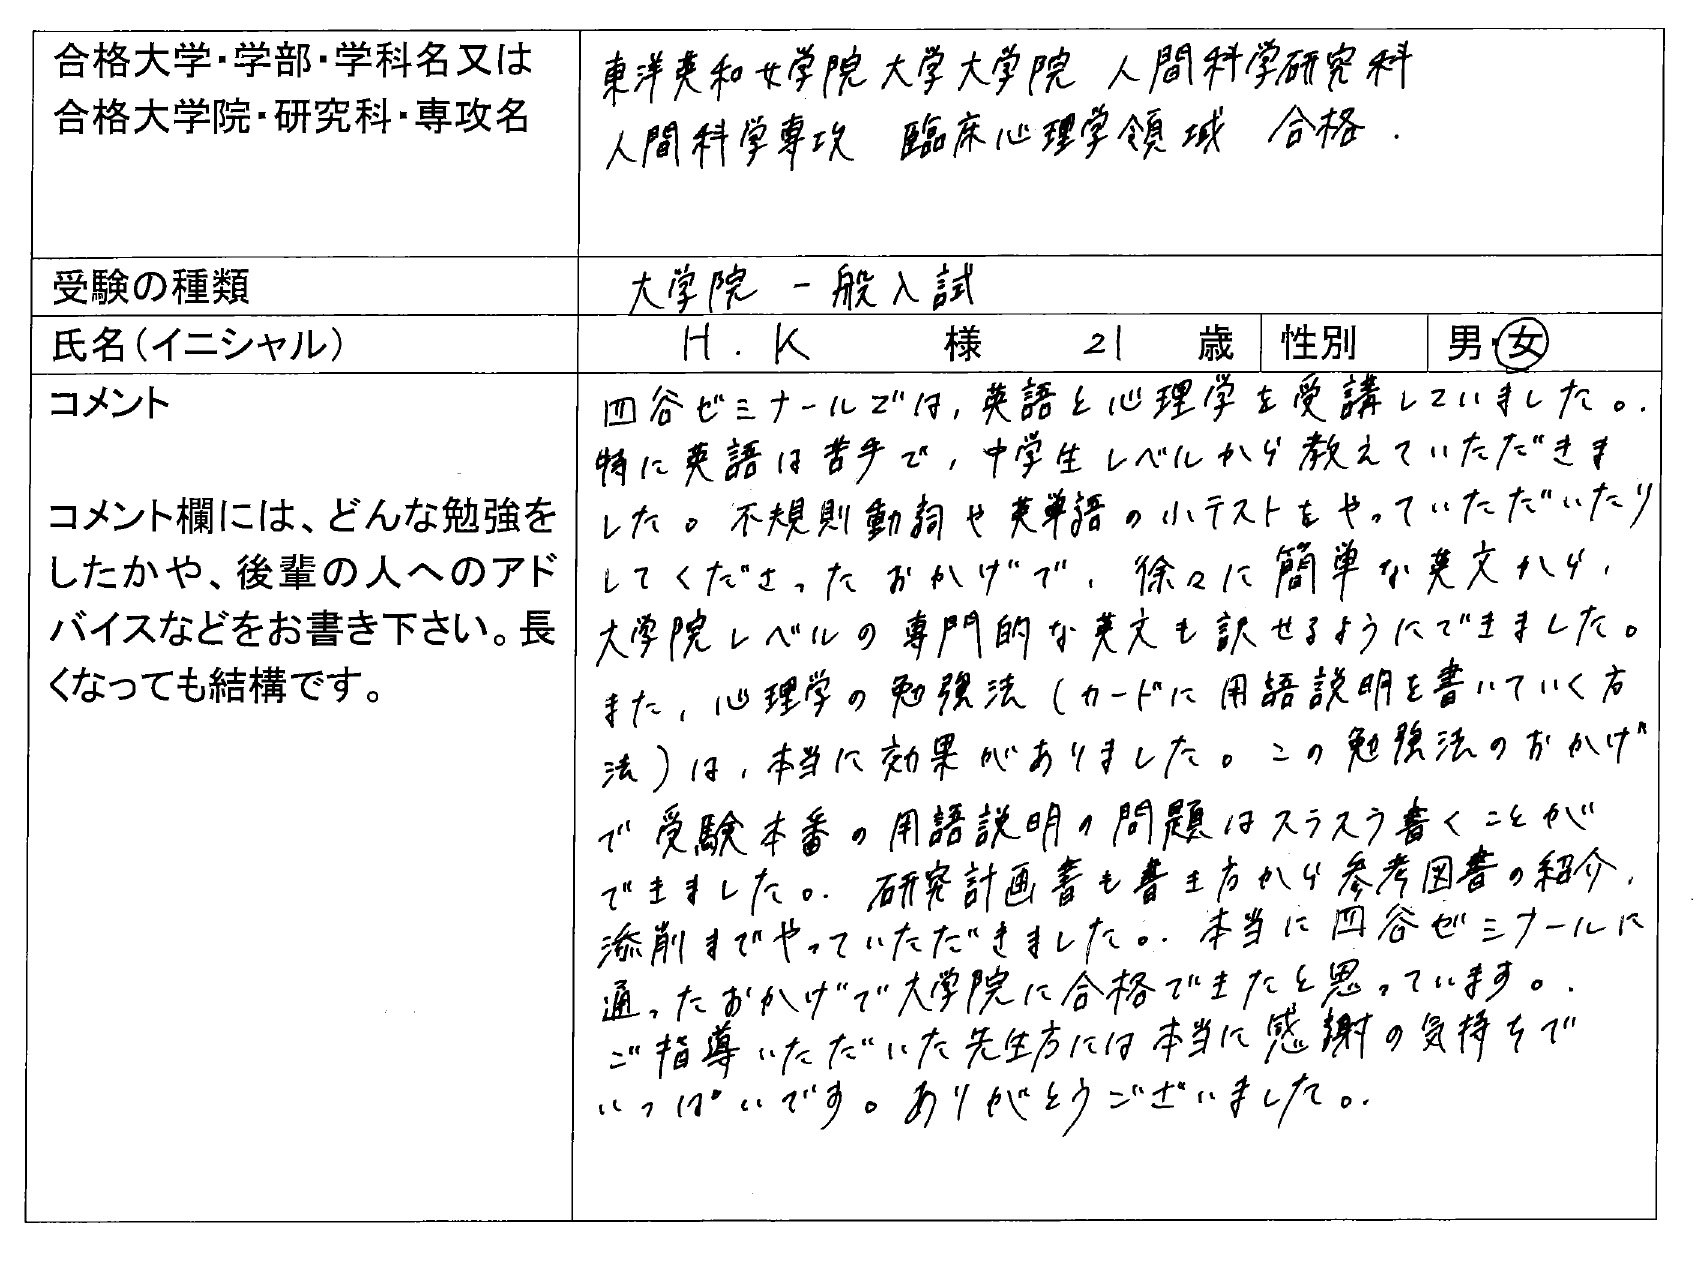 合格大学・学部・学科名又は
合格大学院・研究科・専攻名
東洋英和女学院大学大学院 人間科学研究科
人間科学専攻 臨床心理学領域 合格.
受験の種類
大学院 一般入試
氏名(イニシャル)
H.K 様 21 歳 性別 男・女
コメント
コメント欄には、どんな勉強を
したかや、後輩の人へのアド
バイスなどをお書き下さい。長
くなっても結構です。
四谷ゼミナールでは,英語と心理学を受講していました。
特に英語は苦手で,中学生レベルから教えていただきま
した。不規則動詞や英単語の小テストをやっていただいたり
してくださったおかげで,徐々に簡単な英文から,
大学院レベルの専門的な英文も訳せるようにできました。
また,心理学の勉強法(カードに用語説明を書いていく方
法)は,本当に効果がありました。この勉強法のおかげ
で受験本番の用語説明の問題はスラスラ書くことが
できました。研究計画書も書き方から参考図書の紹介,
添削までやっていただきました。本当に四谷ゼミナールに
通ったおかげで大学院に合格できたと思っています。
ご指導いただいた先生方には本当に感謝の気持ちで
いっぱいです。ありがとうございました。